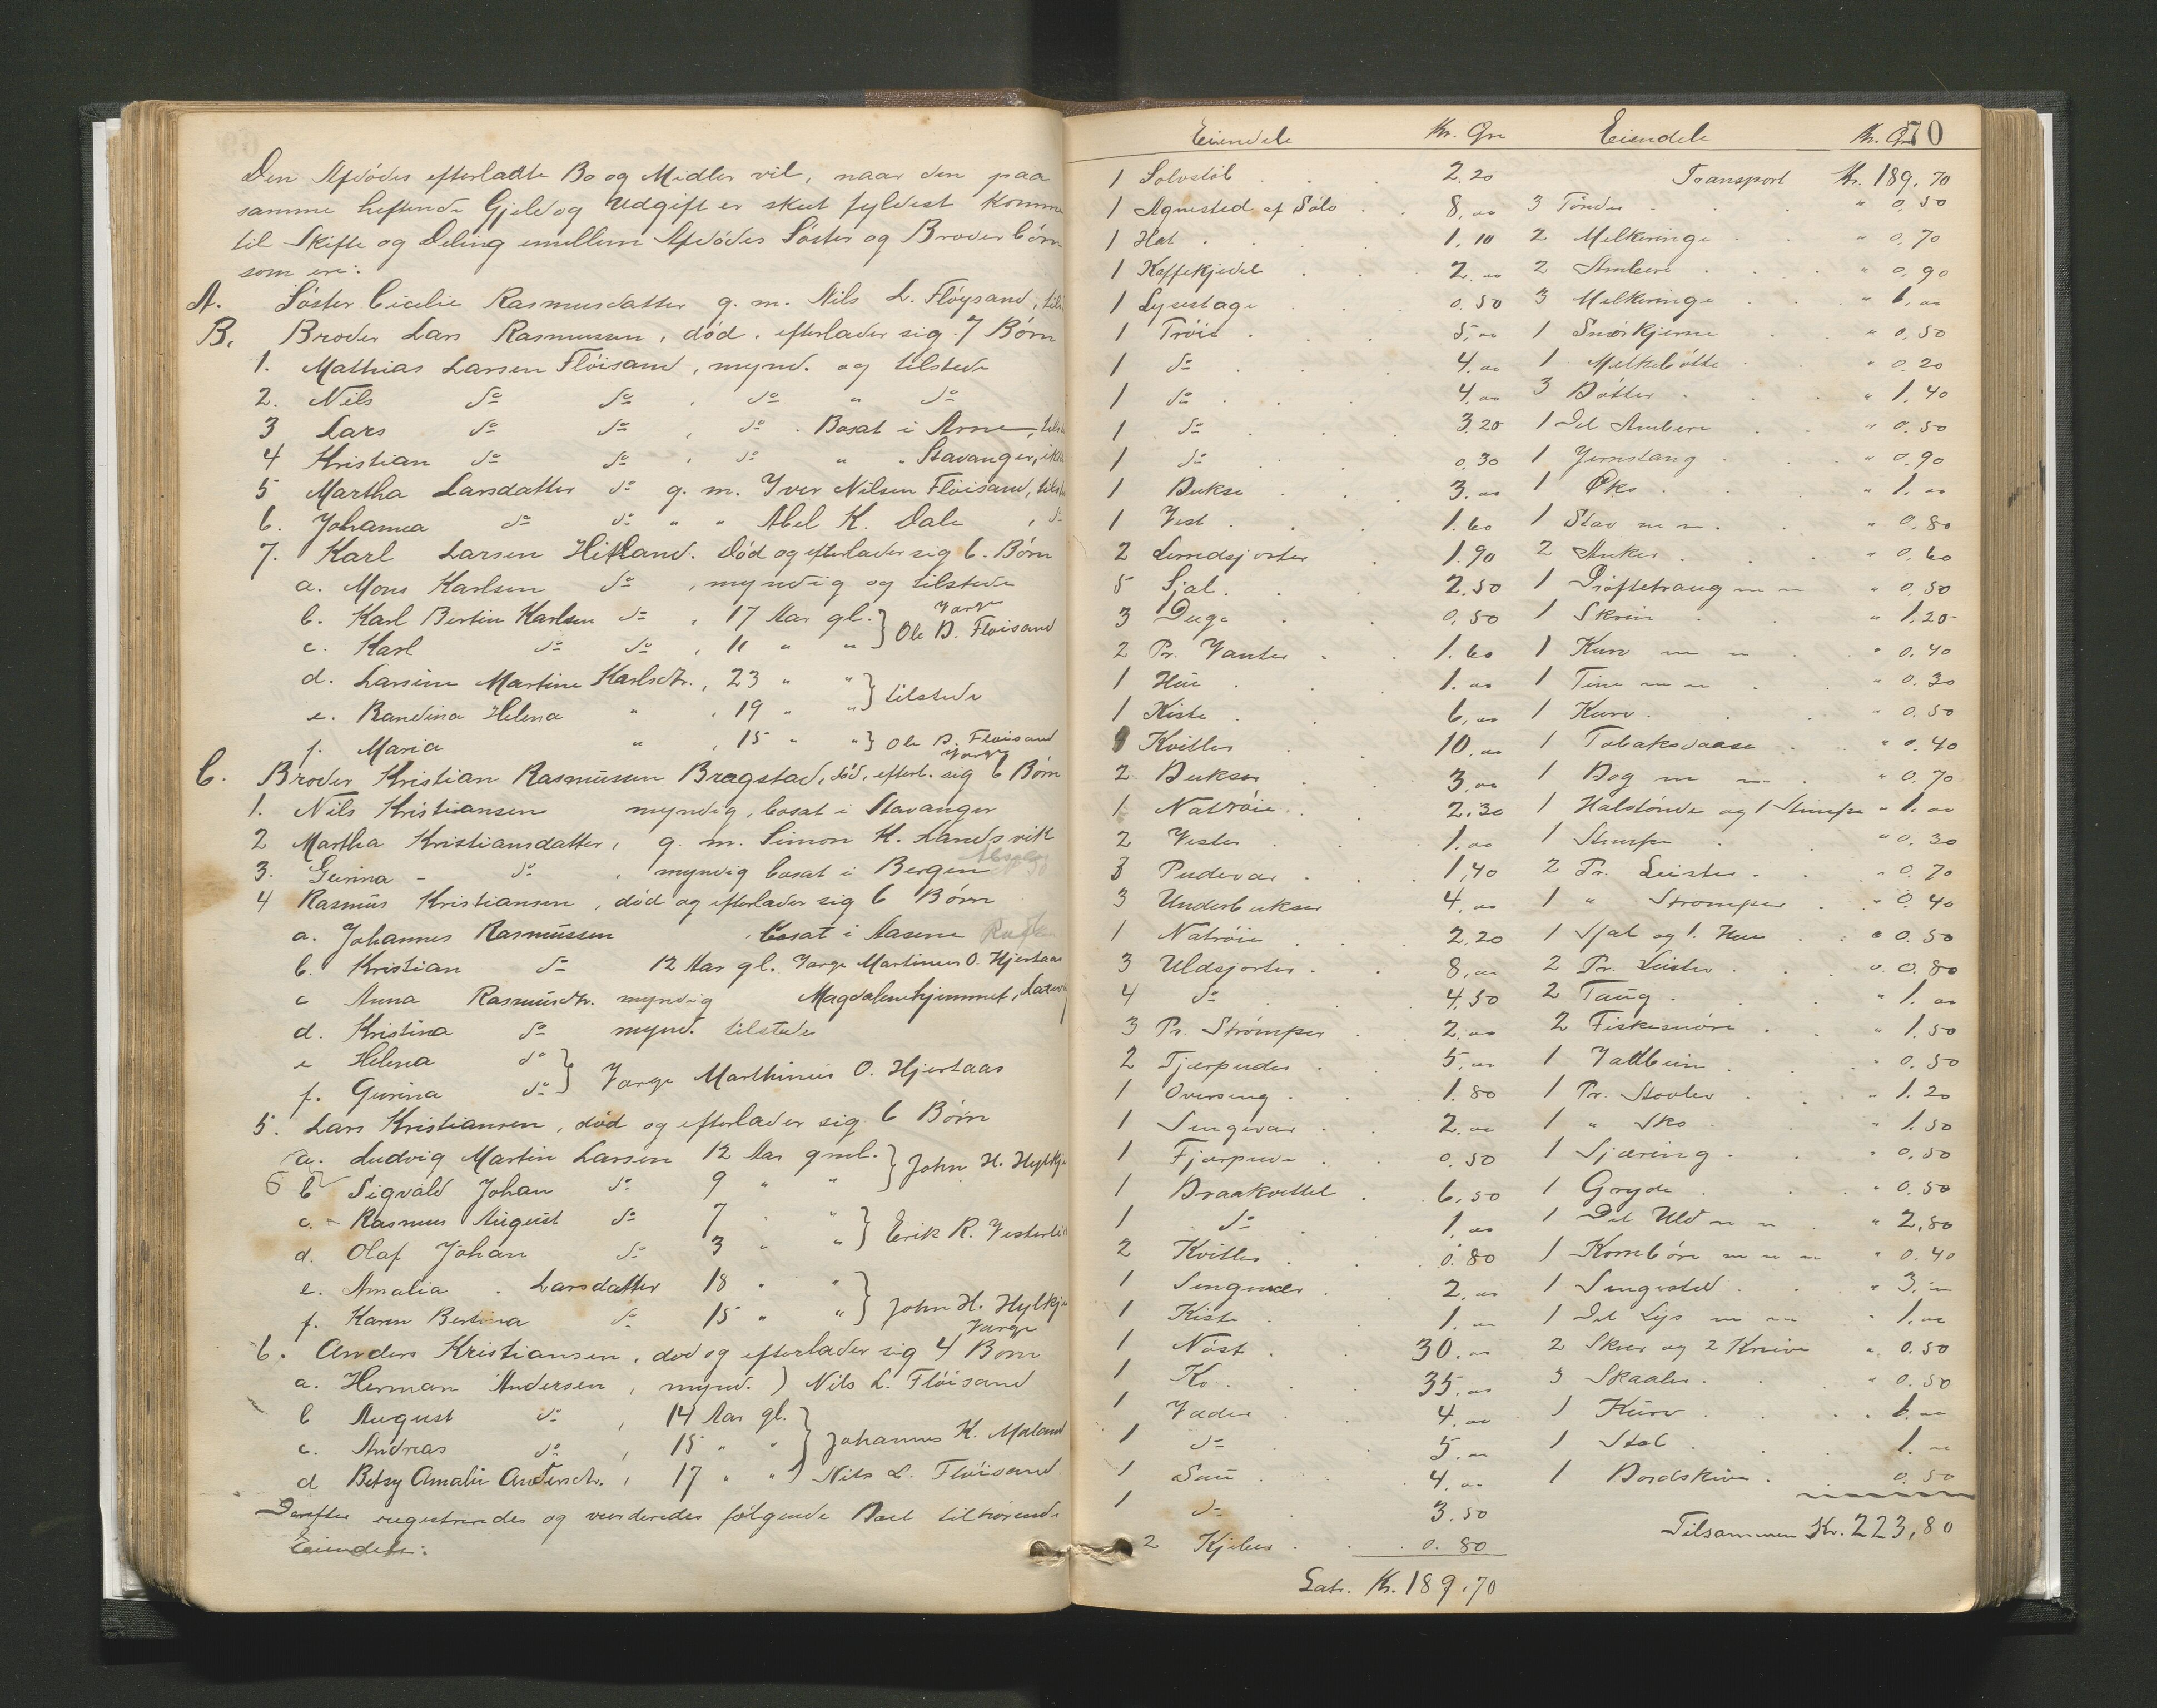 Den Afdødes efterladte Bo og Midler vil, naar den paa
samme heftende Gjeld og Udgift er skeet fyldest komme
til Skifte og Deling emellem Afdødes Søster og Broderbørn
som ere:
A. Søster Cicelie Rasmusdatter g. m. Nils L. Fløysand,
B. Broder Lars Rasmussen, død, efterlader sig 7 Børn
1. Mathias Larsen Fløisand, mynd. og tilstede
2. Nils do do, do " do
3 Lars do do, do . Bosat i Arne,
4 Kristian do do, do " " Stavanger,
5 Martha Larsdatter do g. m. Iver Nilsen Fløisand,
6. Johanna do do " " Abel K. Dale, do
7. Karl Larsen Hitland. Død og efterlader sig 6. Børn
a. Mons Karlsen do, myndig og tilstede
b. Karl Bertin Karlsen do, 17 Aar gl. } Værge
c. Karl do do, 11 " " } Ole B. Fløisand
d. Larsine Martine Karlsdtr., 23 " " } tilstede
e. Randina Helena ", 19 " "
f. Maria ", 15 " " } Ole B. Fløisand
Værge
C. Broder Kristian Rasmussen Bragstad, død, efterl. sig 6 Børn
1. Nils Kristiansen myndig, bosat i Stavanger
2 Martha Kristiansdatter, g. m. Simon H. Landsvik
3. Gurina - do, myndig bosat i Bergen
4 Rasmus Kristiansen, død og efterlader sig 6 Børn
a. Johannes Rasmussen bosat i Aasene
b. Kristian do 12 Aar gl. Værge Martinus O. Hjertaas
c Anna Rasmusdtr. myndig Magdalenehjemmet,
d. Kristina do mynd. tilstede
e Helena do }
f. Gurina do } Værge Marthinus O. Hjertaas
5. Lars Kristiansen, død og efterlader sig 6 Børn
a. Ludvig Martin Larsen 12 Aar gml. } John H. Hylkje
b Sigvald Johan do 9 " "
c. - Rasmus August do 7 " " } Erik R.
d. Olaf Johan do 3 " "
e. Amalia . Larsdatter 18 " " } John H. Hylkje
f. Karen Bertina do 15 " "
Værge
6. Anders Kristiansen, død og efterlader sig 4 Børn
a. Herman Andersen, mynd. ) Nils L. Fløisand
b August do, 14 Aar gl. } Johannes K. Moland
c. Andreas do, 15 " "
d Betsy Amalie Andersdtr., 17 " " ) Nils L. Fløisand.
Derefter registreredes og vurderedes følgende Boet tilhørende
Eiendele:
70
Eiendele Kr. Øre
1 Solvstøb 2.20
1 Agnested af Sølv 8,00
1 Hat 1,10
1 Kaffekjedel 2.00
1 Lysestage 0.50
1 Trøie 5,00
1 do 4.00
1 do 4.00
1 do 3.20
1 do 0.30
1 Bukse 3.00
1 Vest 1.60
2 Lerredsjorter 1.90
5 Sjal 2.50
3 Duge 0,50
2 Pr. Vanter 1.60
1 Hue 1.00
1 Kiste 6,00
Kvitler 10.00
2 Bukser 3,00
1 Natrøie 2.30
2 Vester 1.00
3 Pudevar 1,40
3 Underbukser 4,00
1 Natrøie 2.20
3 Uldsjorter 8,00
4 do 4,50
3 Pr. Strømper 2,00
2 Fjærpuder 5,00
1 Overseng 1.80
1 Sengevar 2.00
1 Fjærpude 0.50
1 Braakvittel 6,50
1 do 1,00
2 Kvitler 0.80
1 Sengeklæder 2,00
1 Kiste 1.00
1 Nøst 30.00
1 Ko 35,00
1 Væder 4,00
1 do 5.00
1 Sau 4.00
1 do 3.50
2 Kjeler 0.80
Lat. Kr. 189.70
Eiendele Kr. Øre
Transport Kr. 189,70
3 Tønder " 0,50
2 Melkeringe " 0,70
2 Ambere " 0,90
3 Melkeringe " 1,00
1 Smørkjerne " 0,50
1 Melkebøtte " 0.20
3 Bøtter " 1.40
1 Del Ambere " 0.50
1 Jernstang " 0.90
1 Øks " 1.00
1 Stav m m. " 0.80
2 Anker " 0.60
1 Drøftetraug m m " 0,50
1 Skrin " 1.20
1 Kurv m m " 0.40
1 Tine m m " 0.30
1 Kurv " 0.50
1 Tobaksdaase " 0.40
1 Bog m m " 0.70
1 Halvtønde og 1 Stampe " 1.00
1 Stampe " 0.30
2 Pr. Leister " 0.70
1 " Strømper " 0.40
1 Sjal og 1. Hue " 0.50
2 Pr. Leister " 0.80
2 Taug " 1.00
2 Fiskesnøre " 1.50
1 Vadbein " 0.50
1 Pr. Støvler " 1.20
1 " Sko " 1.50
1 Sjæring " 0,50
1 Gryde " 0.50
1 Del Uld m m " 2,80
1 Kornbøre m m m " 0.40
1 Sengested " 3.00
1 Del Lys m m " 1.00
2 Skeer og 2 Knive " 0.50
3 Skaaler " 0.50
1 Kurv " 1.00
1 Stol 1.00
1 Bordskive 0.50
Tilsammen Kr. 223,80